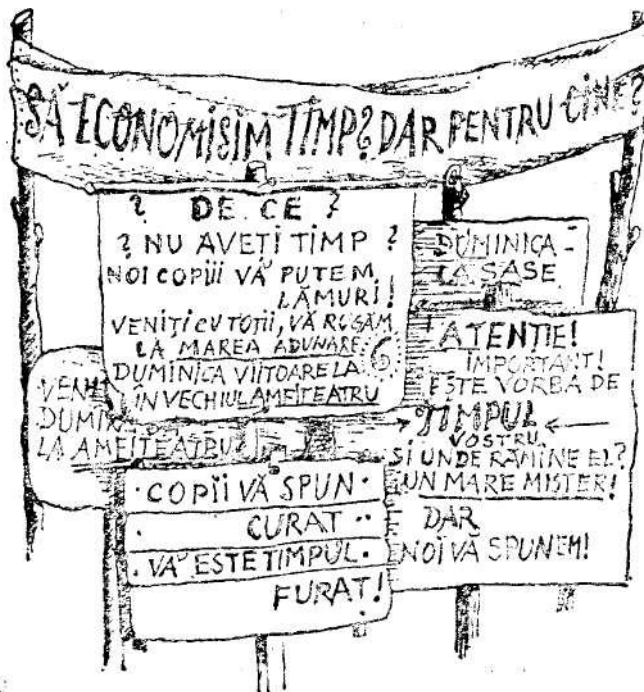 SĂ ECONOMISIM TIMP? DAR PENTRU CINE?
? DE CE ?
? NU AVEȚI TIMP ?
NOI COPIII VĂ PUTEM
LĂMURI!
VENIȚI CU TOȚII, VĂ RUGĂM
LA MAREA ADUNARE
DUMINICA VIITOARE LA 6
ÎN VECHIUL AMFITEATRU
DUMINICA
LA ȘASE
ATENȚIE!
IMPORTANT!
ESTE VORBA DE
TIMPUL
VOSTRU.
ȘI UNDE RĂMÎNE EL?
UN MARE MISTER!
DAR
NOI VĂ SPUNEM!
VENI
DUMINI
LA AMFITEATRU
COPIII VĂ SPUN
CURAT
VĂ ESTE TIMPUL
FURAT!